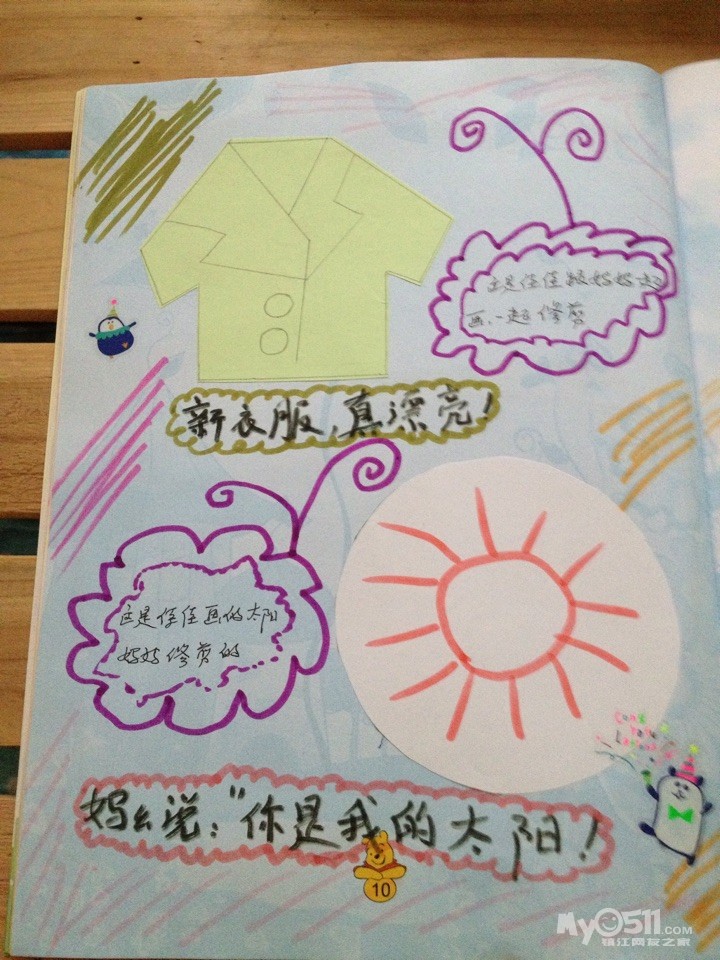 这是佳佳跟妈妈
画、一起修剪
新衣服，真漂亮！
这是佳佳画的太阳
妈妈修剪的
妈么说：“你是我的太阳！
10
My0511.COM
镇江网友之家